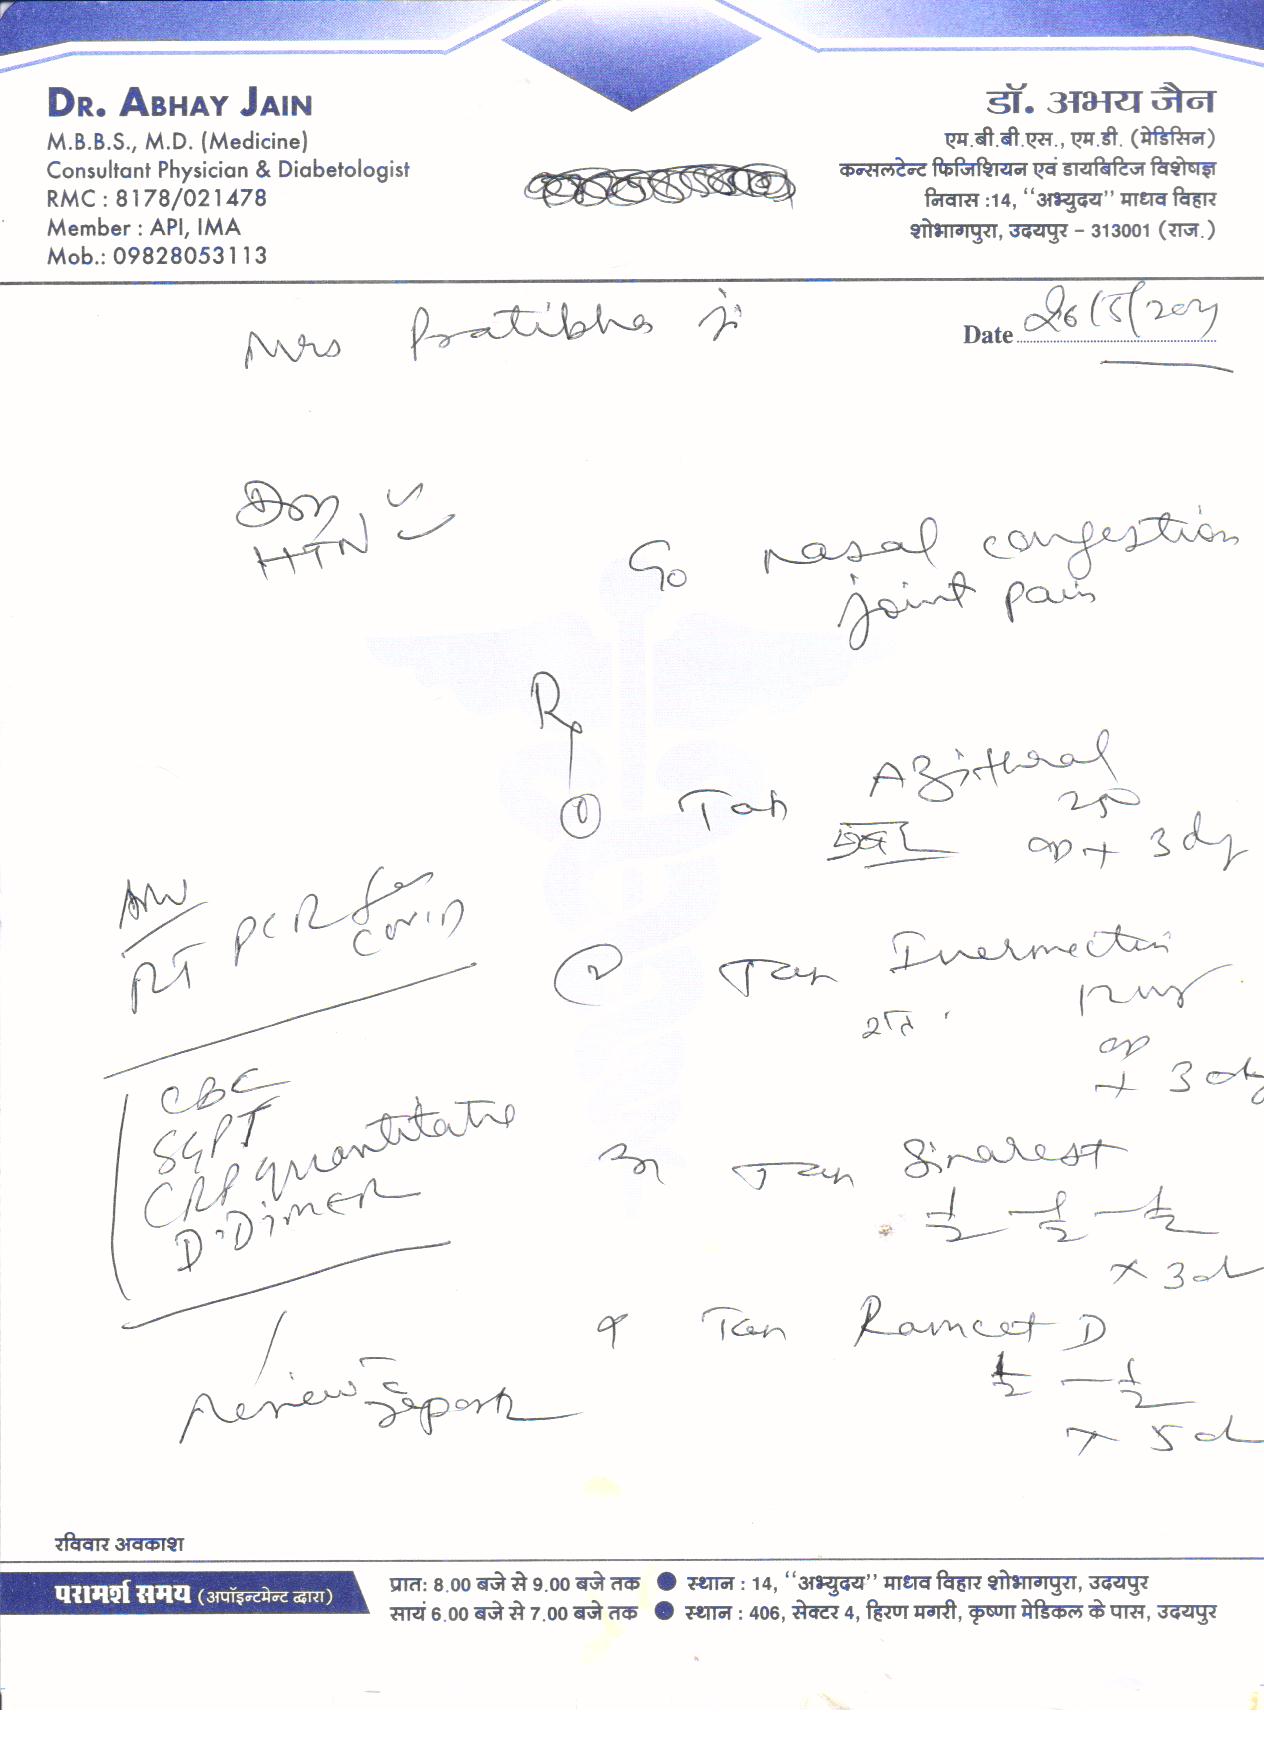 DR. ABHAY JAIN
M.B.B.S., M.D. (Medicine)
Consultant Physician & Diabetologist
RMC : 8178/021478
Member : API, IMA
Mob.: 09828053113
डॉ. अभय जैन
एम.बी.बी.एस., एम.डी. (मेडिसिन)
कन्सलटेन्ट फिजिशियन एवं डायबिटिज विशेषज्ञ
निवास :14, “अभ्युदय” माधव विहार
शोभागपुरा, उदयपुर – 313001 (राज.)
Mrs Pratibha ji
Date 26/5/2021
HTN
C/o nasal congestion
joint pain
Rp
① Tab Azithral
250
OD + 3 dy
Adv
RT PCR for
COVID
② Tab Ivermectin
12 mg
रात
OD
+ 3 dy
CBC
SGPT
CRP quantitative
D.Dimer
3 Tab Sinarest
1/2 – 1/2 – 1/2
× 3 d
4 Tab Ramcet D
1/2 – 1/2
× 5 d
review report
रविवार अवकाश
परामर्श समय (अपॉइन्टमेन्ट द्वारा)
प्रात: 8.00 बजे से 9.00 बजे तक ● स्थान : 14, “अभ्युदय” माधव विहार शोभागपुरा, उदयपुर
सायं 6.00 बजे से 7.00 बजे तक ● स्थान : 406, सेक्टर 4, हिरण मगरी, कृष्णा मेडिकल के पास, उदयपुर